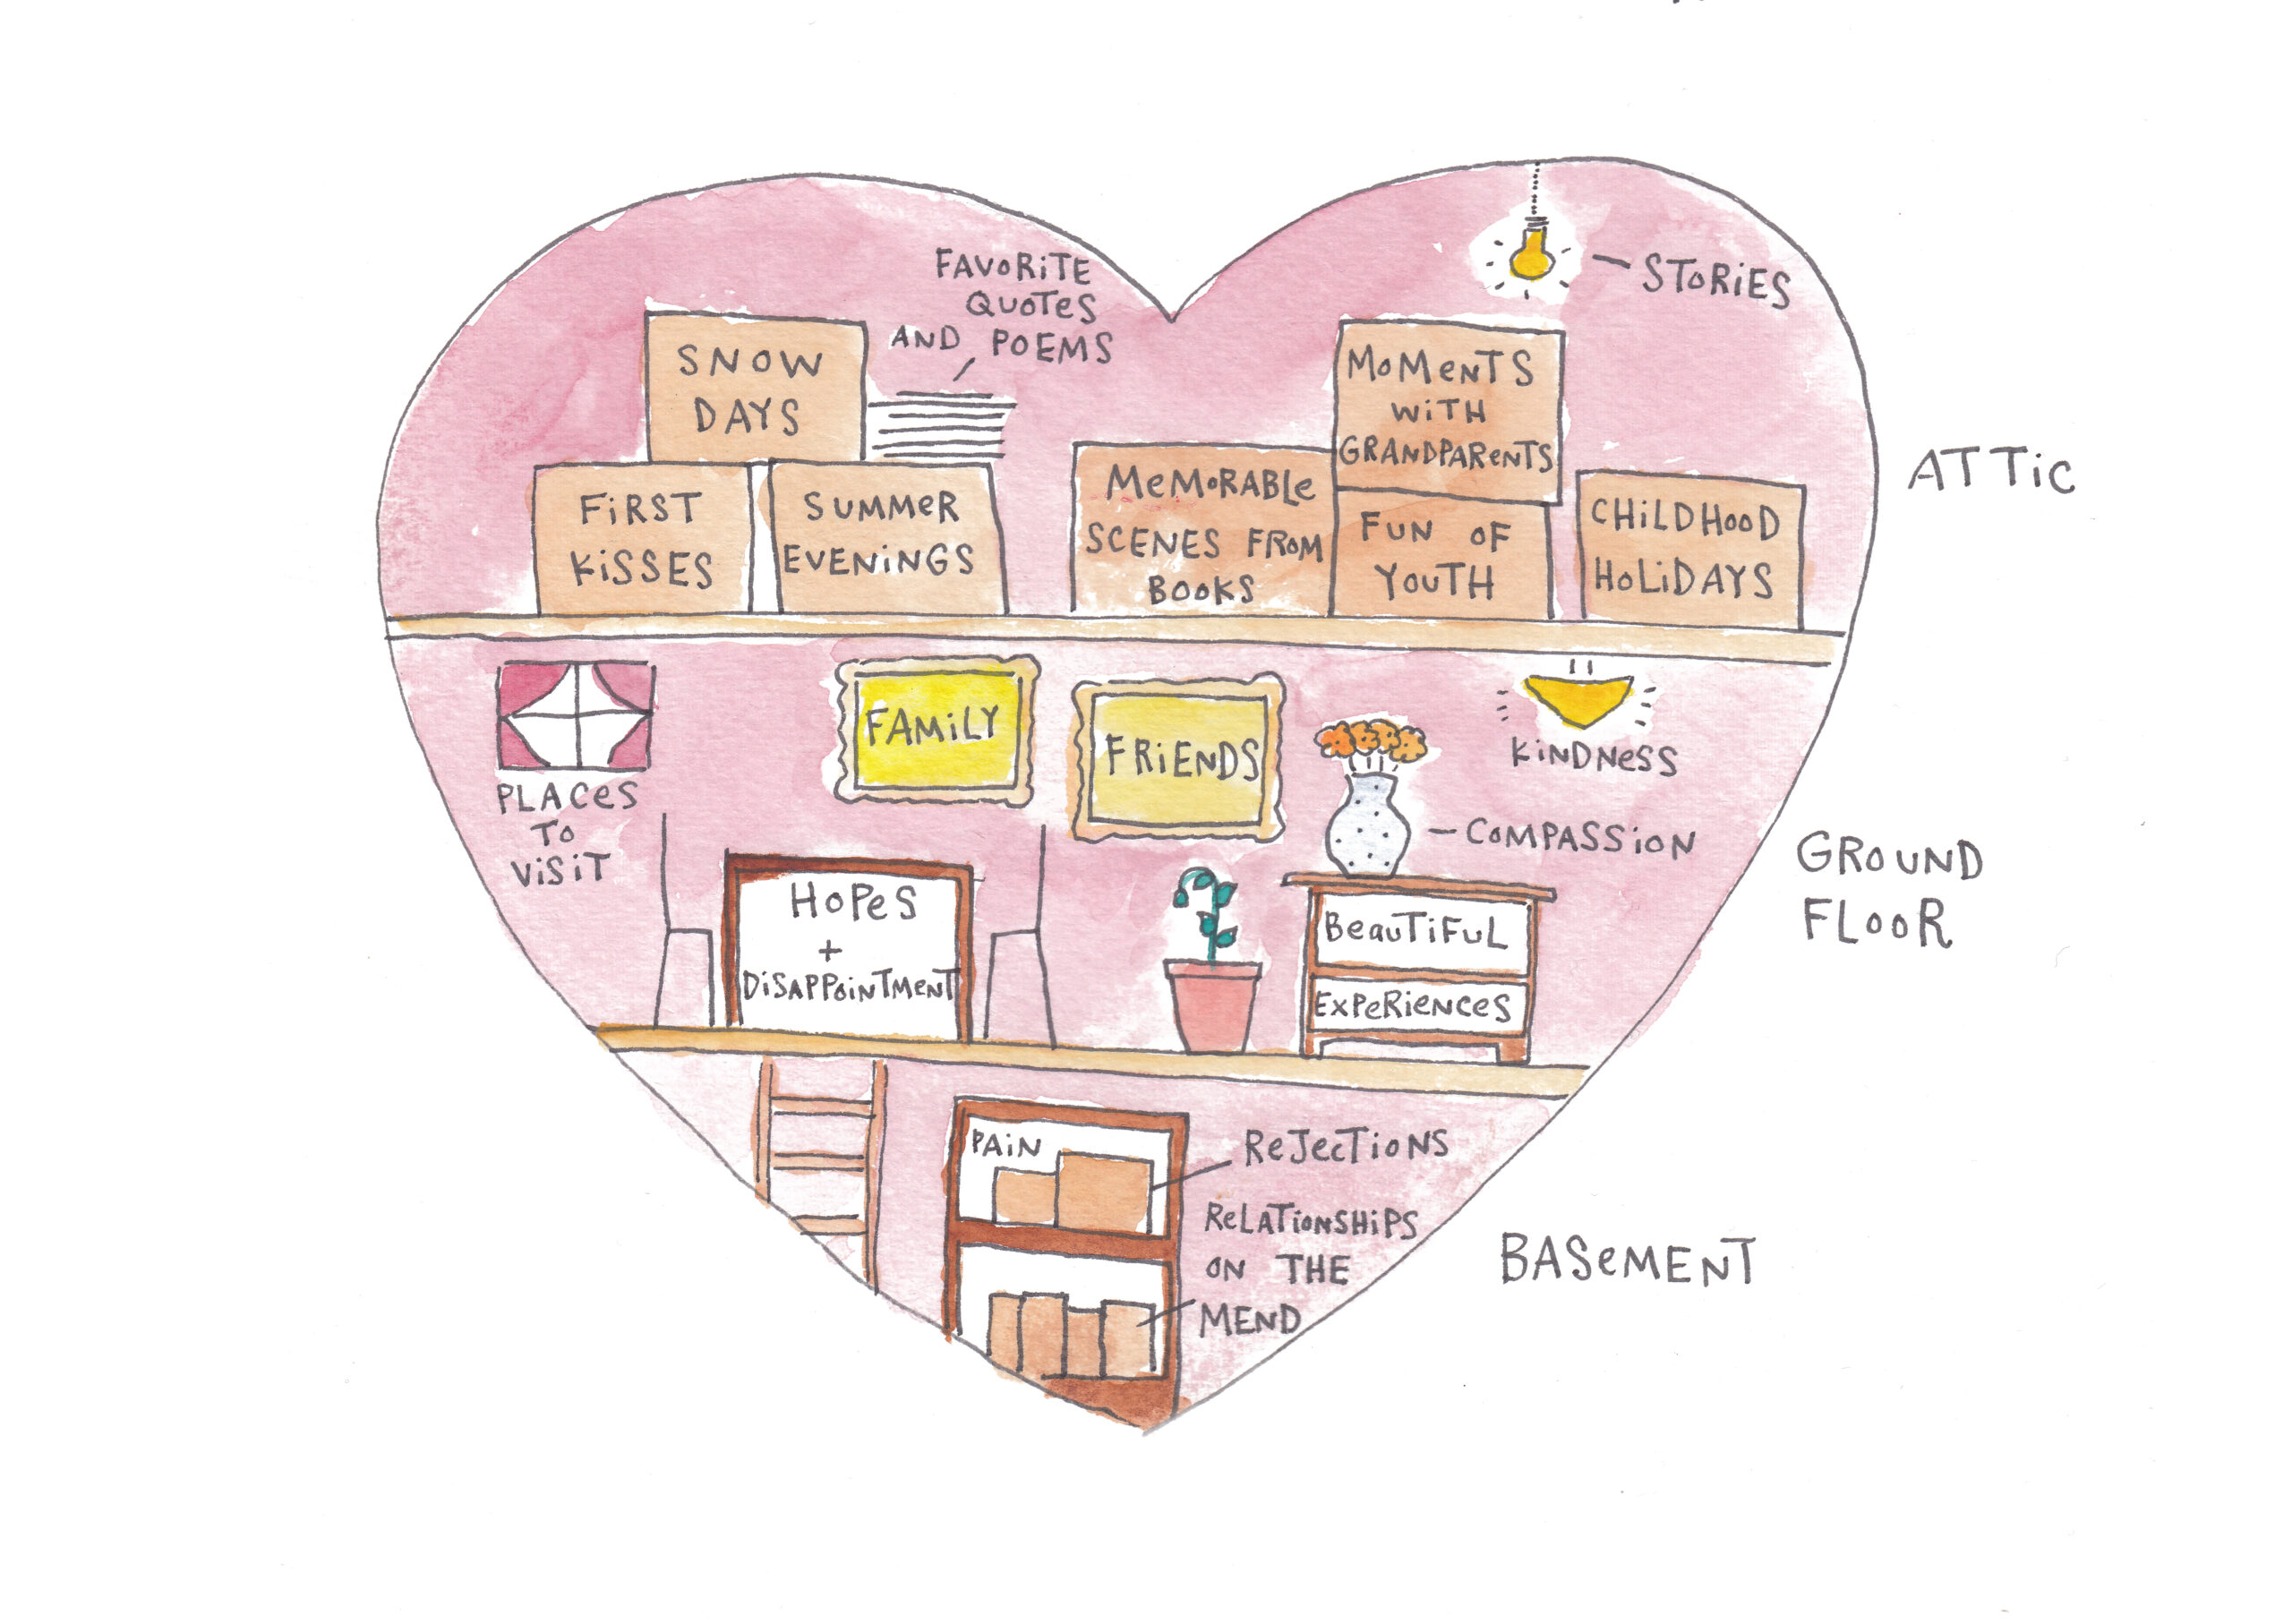 FAVORITE
QUOTES
AND POEMS
STORIES
SNOW
DAYS
MOMENTS
WITH
GRANDPARENTS
FIRST
KISSES
SUMMER
EVENINGS
MEMORABLE
SCENES FROM
BOOKS
FUN OF
YOUTH
CHILDHOOD
HOLIDAYS
ATTIC
PLACES
TO
VISIT
FAMILY
FRIENDS
KINDNESS
COMPASSION
HOPES
+
DISAPPOINTMENT
BEAUTIFUL
EXPERIENCES
GROUND
FLOOR
PAIN
REJECTIONS
RELATIONSHIPS
ON THE
MEND
BASEMENT